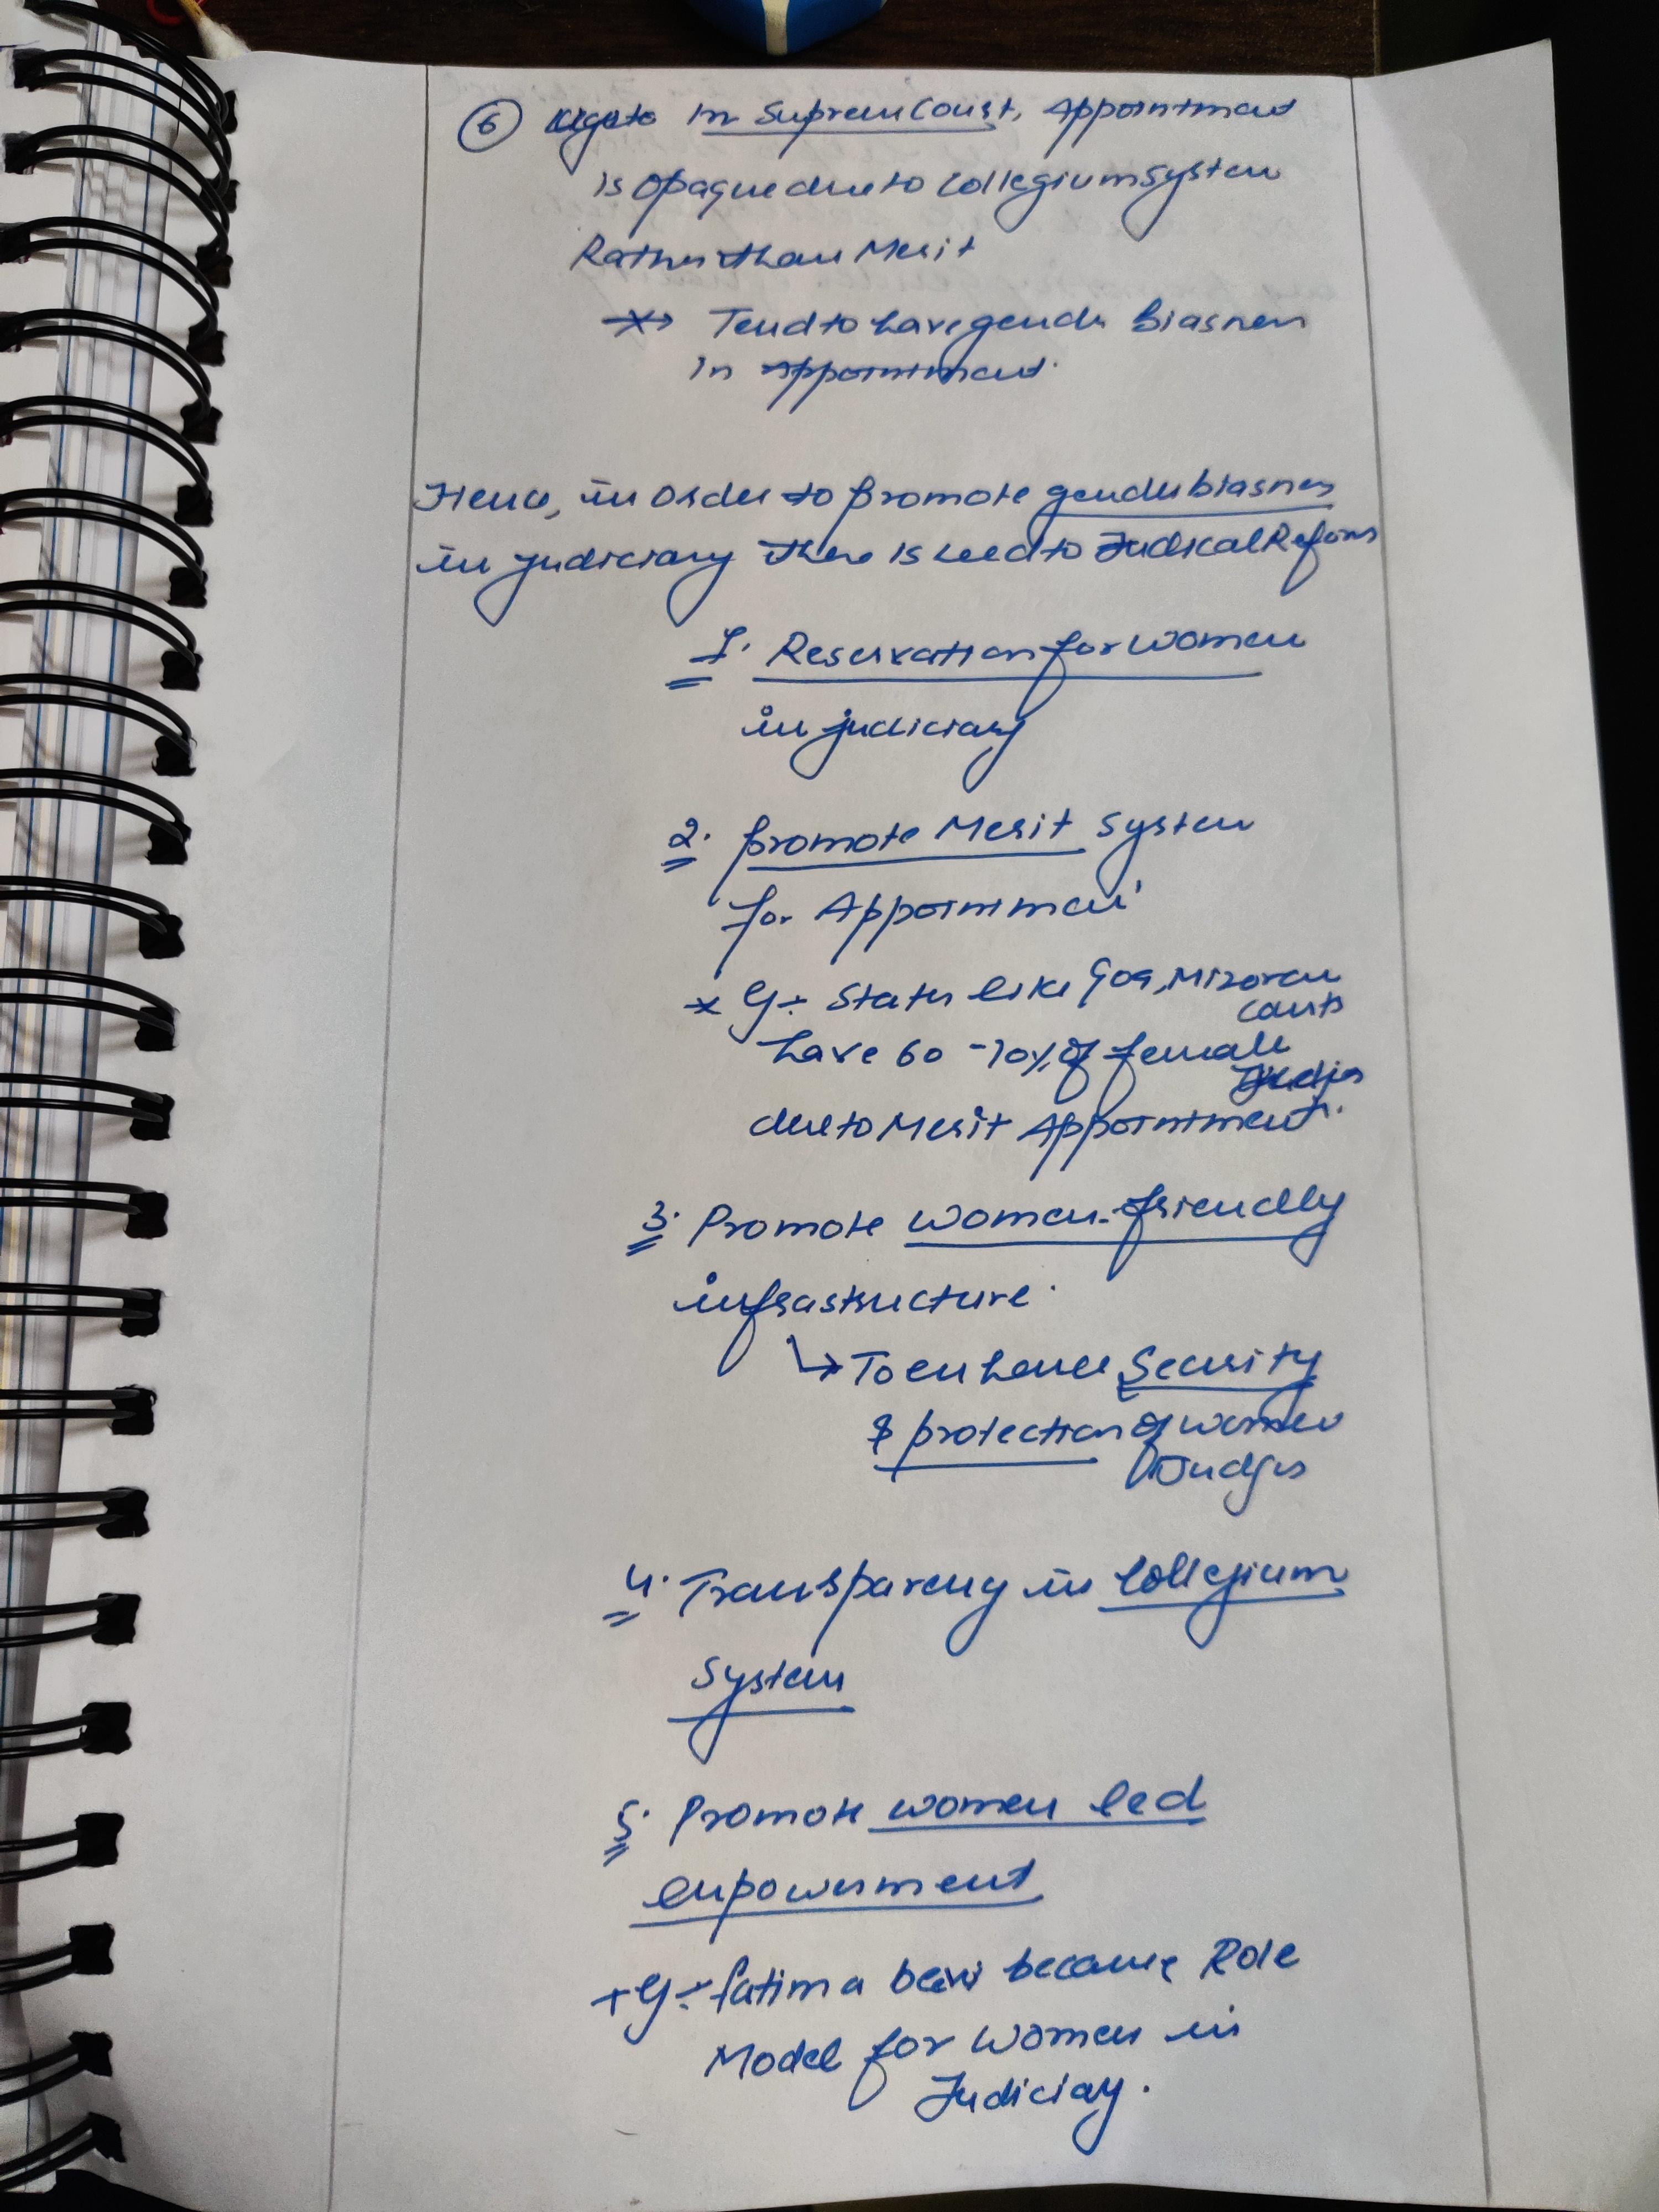 6 In Supreme Court, Appointment
is opaque due to collegium system
Rather than Merit
Tend to have gender biasness
in appointment.
Hence, in order to promote gender biasness
in judiciary there is need to Judical Reforms
1. Reservation for women
in judiciary
2. promote Merit system
for Appointment
* Eg:- States like Goa, Mizoram
courts
have 60-70% of female
Judges
due to Merit Appointment.
3. Promote women-friendly
infrastructure.
↳ To enhance Security
& protection of women
Judges
4. Transparency in Collegium
System
5. Promote women led
empowerment
Eg:- fatima bevi became Role
Model for Women in
Judiciay.